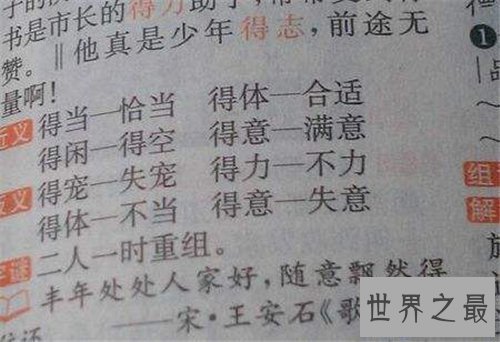 书是市长的得力助手,常常
赞。‖他真是少年得志,前途无
量啊!
近义 得当—恰当 得体—合适
得闲—得空 得意—满意
反义 得宠—失宠 得力—不力
得体—不当 得意—失意
字谜 二人一时重组。
丰年处处人家好,随意飘然得
——宋·王安石《歌
❶
组
解
世界之最